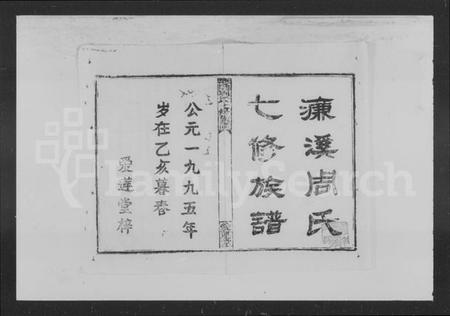 濂溪周氏
七修族譜
公元一九九五年
岁在乙亥暮春
爱蓮堂梓
FamilySearch